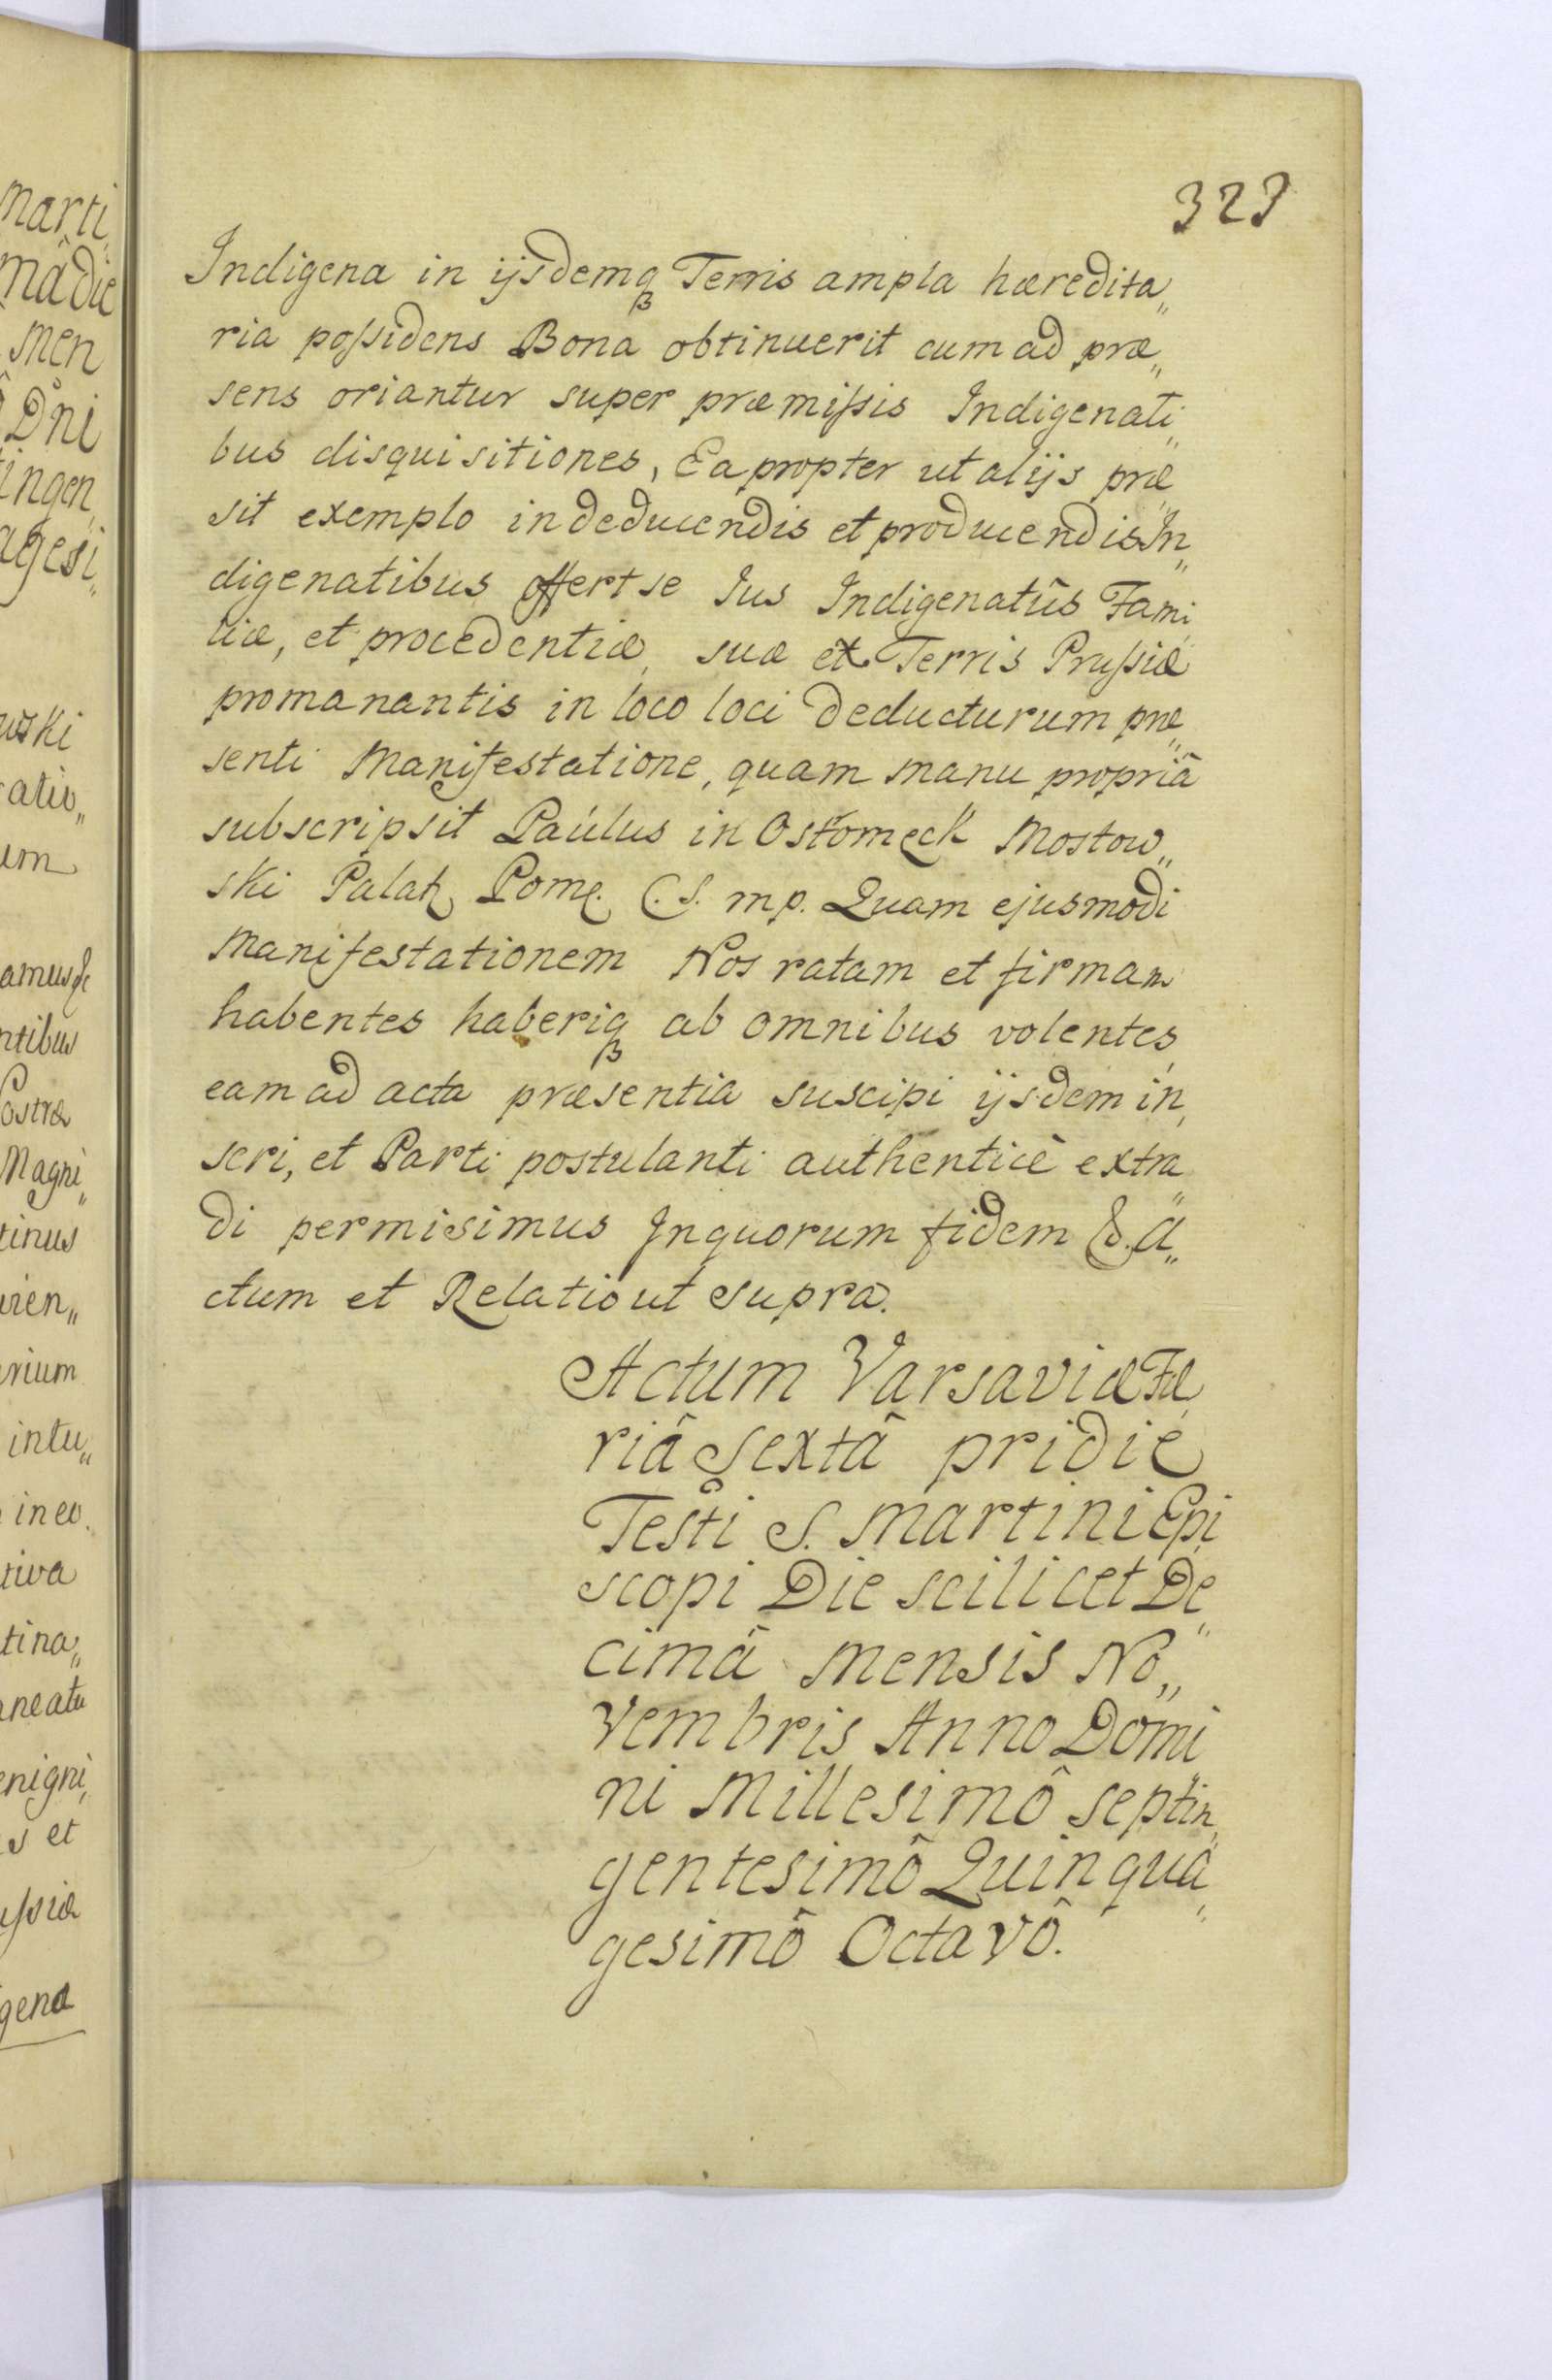 323
Indigena in ijsdemq Terris ampla hæredita„
ria possidens Bona obtinuerit cum ad præ„
sens oriantur super præmissis Indigenati„
bus disquisitiones, Ea propter ut alijs præ„
sit exemplo in deducendis et producendis In„
digenatibus offert se Jus Indigenatûs Fami„
liæ, et procedentiæ suæ ex Terris Prussiæ
promanantis in loco loci deducturum præ„
senti Manifestatione, quam manu propriâ
subscripsit Paulus in Ostomeck Mostow„
ski Palat. Pome. C. S. mp. Quam ejusmodi
Manifestationem Nos ratam et firmam
habentes haberiq ab omnibus volentes
eam ad acta præsentia suscipi ijsdem in„
scri, et Parti postulanti authenticè extra„
di permisimus Inquorum fidem &. A„
ctum et Relatio ut supra.
Actum Varsaviæ Fe„
riâ Sextâ pridie
Festi S. Martini Epi„
scopi Die scilicet De„
cimâ Mensis No„
vembris Anno Domi„
ni Millesimô septin„
gentesimô Quinqua„
gesimô Octavô.
marti„
mâ die
Men
Dni
ingen„
agesi„
wski
atio„
um
ntibus
Magni„
tinus
vien„
rium
intu„
in eo
tiva
tina„
neatu
enigni„
s et
ussiæ
gena